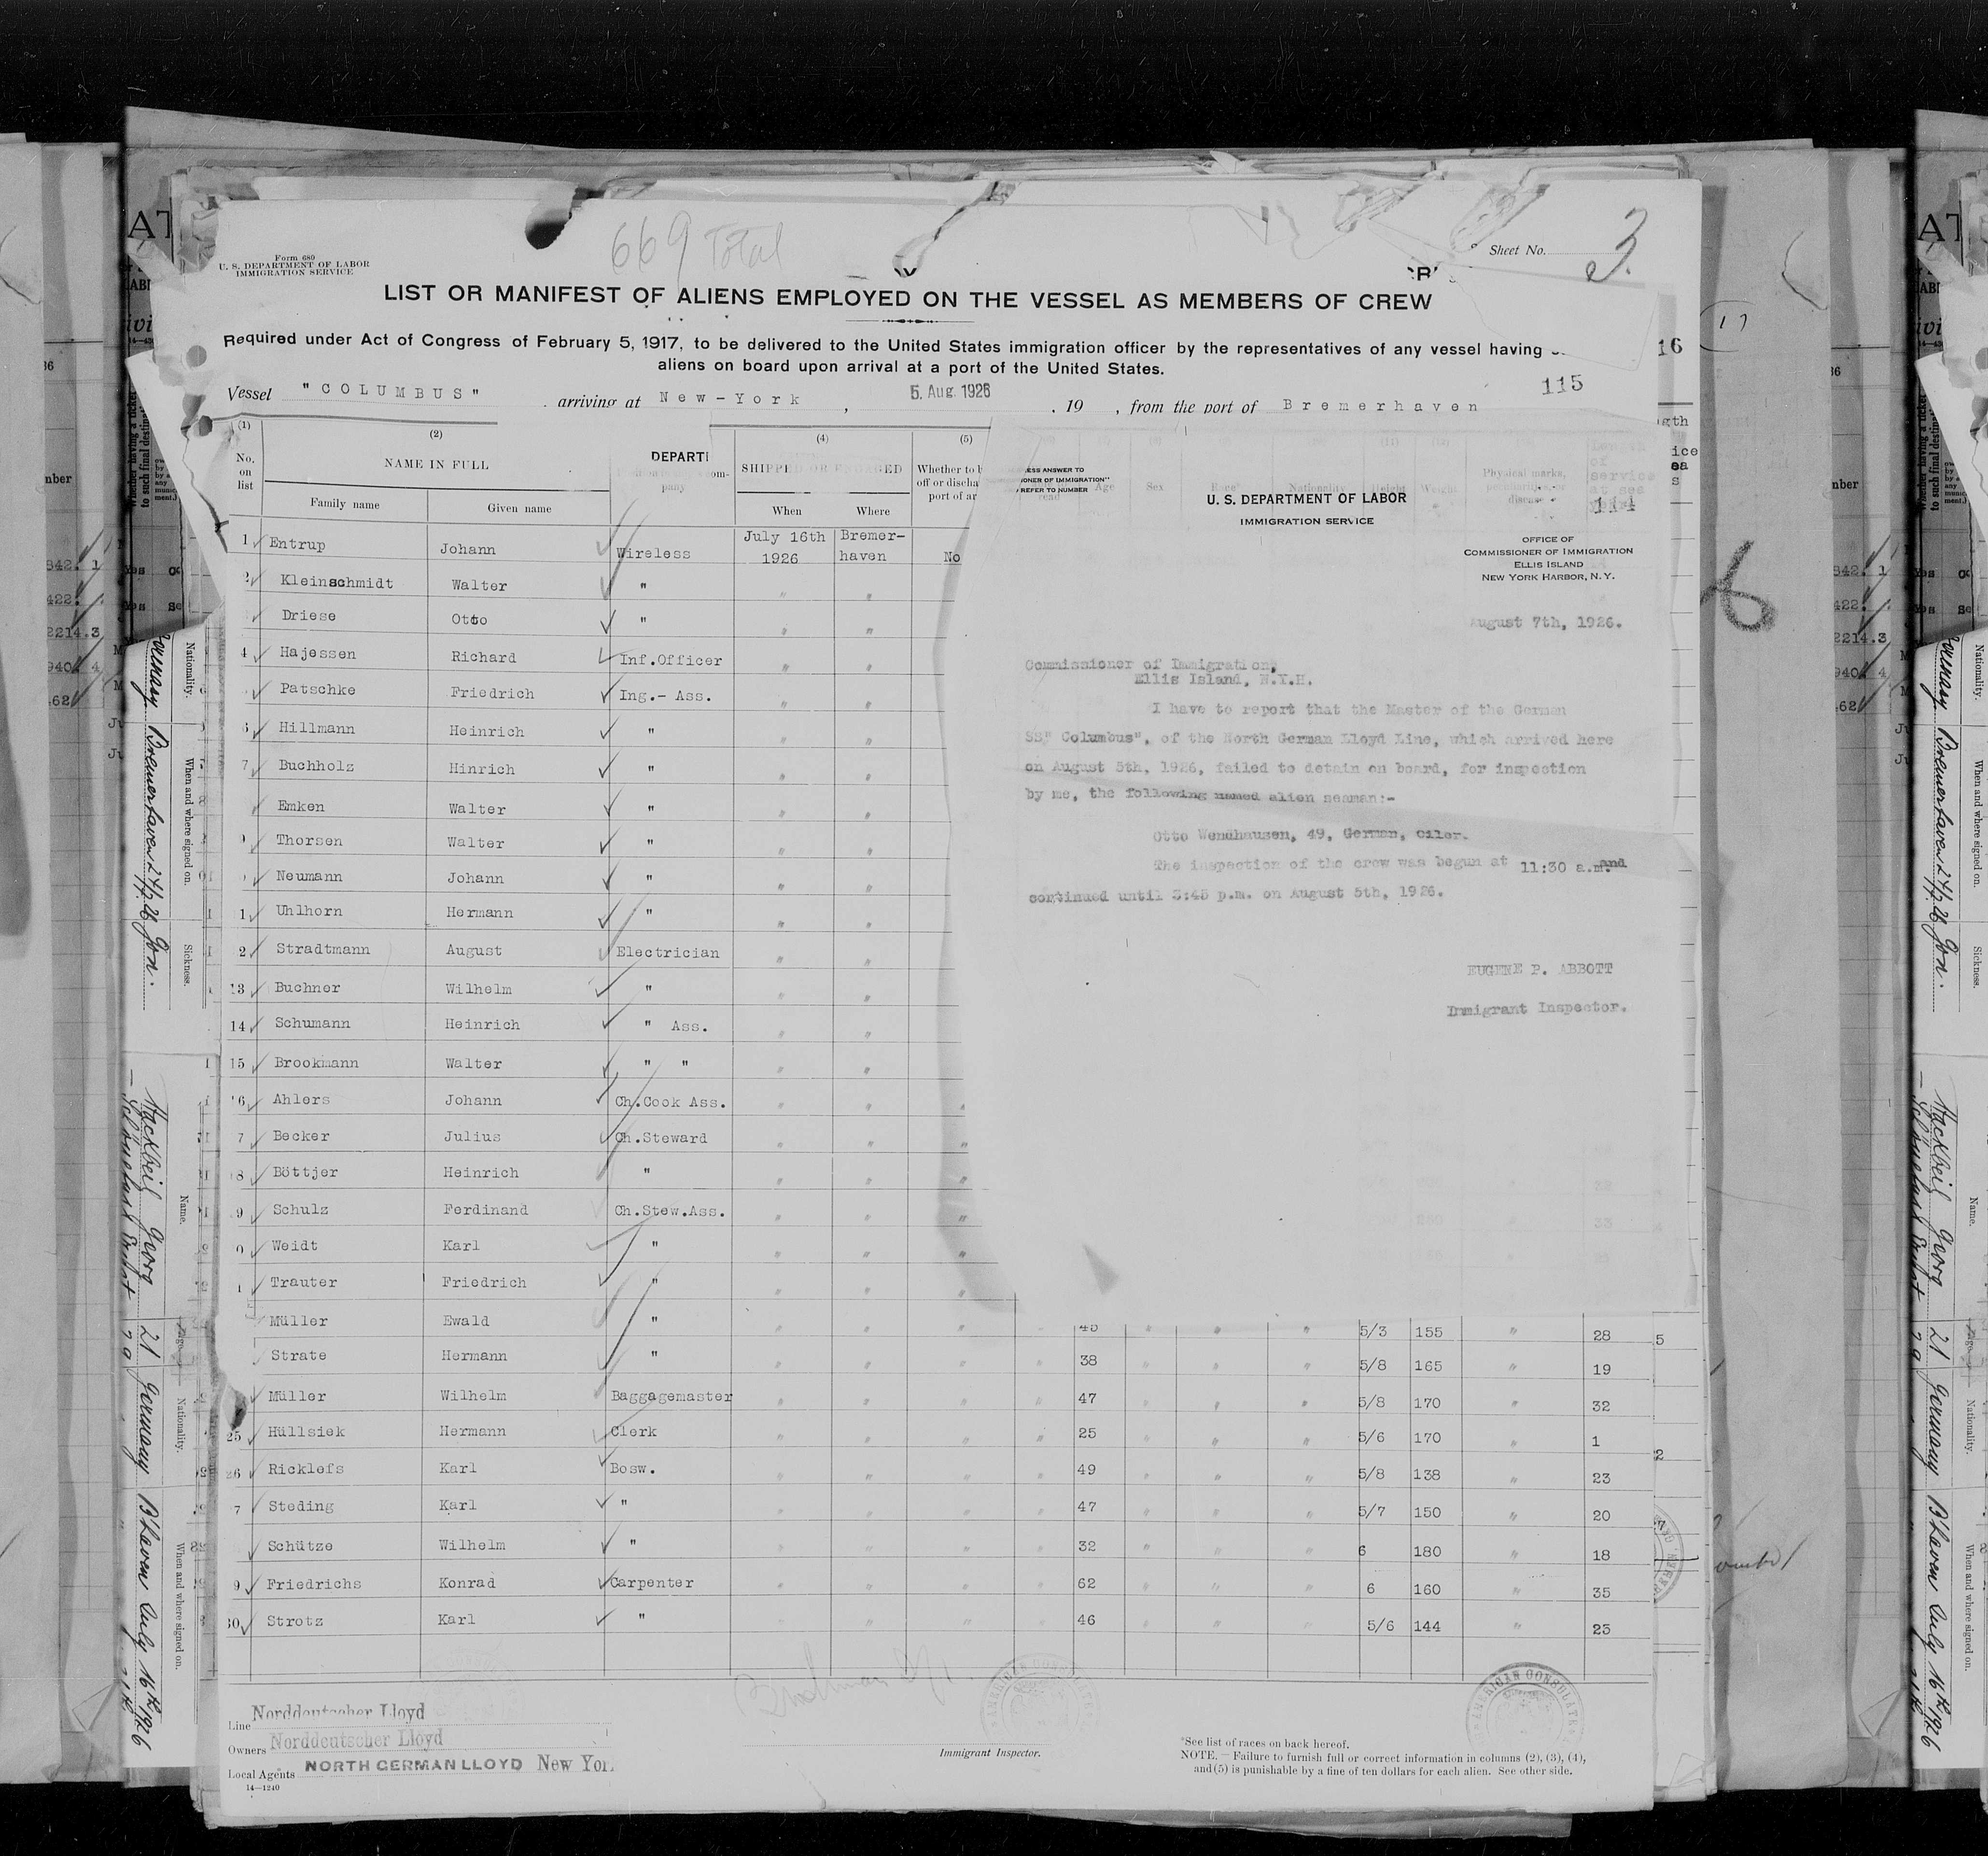 669 Total
Form 680
U. S. DEPARTMENT OF LABOR
IMMIGRATION SERVICE
Sheet No. 3
LIST OR MANIFEST OF ALIENS EMPLOYED ON THE VESSEL AS MEMBERS OF CREW
Required under Act of Congress of February 5, 1917, to be delivered to the United States immigration officer by the representatives of any vessel having
aliens on board upon arrival at a port of the United States.
115
Vessel "COLUMBUS" , arriving at New-York , 5. Aug. 1926 , 19 , from the port of Bremerhaven
(1) (2) (4) (5)
No. on list NAME IN FULL SHIPPED OR ENGAGED
Family name Given name When Where
1 Entrup Johann Wireless July 16th 1926 Bremer-haven No
2 Kleinschmidt Walter " " "
Driese Otto " " "
4 Hajessen Richard Inf.Officer " "
Patschke Friedrich Ing.- Ass. " "
6 Hillmann Heinrich " " "
7 Buchholz Hinrich " " "
Emken Walter " " "
9 Thorsen Walter " " "
Neumann Johann " " "
1 Uhlhorn Hermann " " "
2 Stradtmann August Electrician " "
13 Buchner Wilhelm " " "
14 Schumann Heinrich " Ass. " "
15 Brookmann Walter " " " "
16 Ahlers Johann Ch.Cook Ass. " " "
7 Becker Julius Ch.Steward " " "
8 Böttjer Heinrich " " " "
9 Schulz Ferdinand Ch.Stew.Ass. " " "
0 Weidt Karl " " " "
1 Trauter Friedrich " " " "
Müller Ewald " " " " " " " 5/3 155 " 28
Strate Hermann " " " " " 38 " " " 5/8 165 " 19
Müller Wilhelm Baggagemaster " " " " 47 " " " 5/8 170 " 32
25 Hüllsiek Hermann Clerk " " " " 25 " " " 5/6 170 " 1
26 Ricklefs Karl Bosw. " " " " 49 " " " 5/8 138 " 23
7 Steding Karl " " " " " 47 " " " 5/7 150 " 20
Schütze Wilhelm " " " " " 32 " " " 6 180 " 18
9 Friedrichs Konrad Carpenter " " " " 62 " " " 6 160 " 35
30 Strotz Karl " " " " " 46 " " " 5/6 144 " 23
U. S. DEPARTMENT OF LABOR
IMMIGRATION SERVICE
114
OFFICE OF
COMMISSIONER OF IMMIGRATION
ELLIS ISLAND
NEW YORK HARBOR, N.Y.
August 7th, 1926.
Commissioner of Immigration,
Ellis Island, N.Y.H.
I have to report that the Master of the German
SS" Columbus", of the North German Lloyd Line, which arrived here
on August 5th, 1926, failed to detain on board, for inspection
by me, the following named alien seaman:-
Otto Wendhausen, 49, German, oiler.
The inspection of the crew was begun at 11:30 a.m.and
continued until 3:45 p.m. on August 5th, 1926.
EUGENE P. ABBOTT
Immigrant Inspector.
Line Norddeutscher Lloyd
Owners Norddeutscher Lloyd
Local Agents NORTH GERMAN LLOYD New Yor
14—1240
Immigrant Inspector.
AMERICAN CONSULATE
*See list of races on back hereof.
NOTE.—Failure to furnish full or correct information in columns (2), (3), (4),
and (5) is punishable by a fine of ten dollars for each alien. See other side.
Nationality.
When and where signed on.
Sickness.
Name.
Hackbeil Georg 21 Germany Bhaven July 16th 1926
Nationality.
When and where signed on.